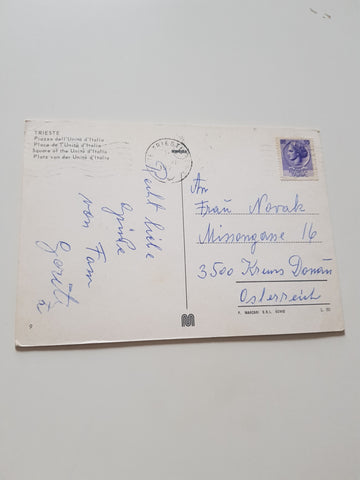 TRIESTE
Piazza dell'Unità d'Italia
Place de l'Unità d'Italia
Square of the Unità d'Italia
Platz von der Unità d'Italia
TRIESTE
Recht liebe
Grüße
von Fam
An
Frau Novak
Missongasse 16
3500 Krems Donau
Österreich
9
L. 50